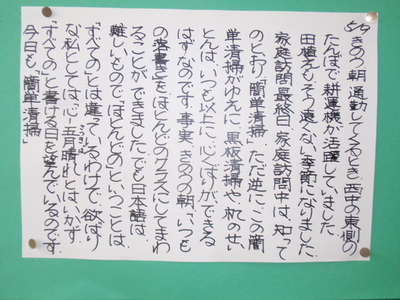 5/9 きのう朝、通勤してくるとき、西中の東側の
たんぼで、耕運機が活躍していました。
田植えも、そう遠くない季節になりました。
家庭訪問最終日。家庭訪問中は、知って
のとおり「簡単清掃」。ただ、逆に、この簡
単清掃がゆえに、黒板清掃や、机のせい
とんは、いつも以上に、心くばりができる
はずなのです。事実、きのうの朝、いつも
の落書きを、ほとんどのクラスにしてまわ
ることができました。でも、日本語は
難しいもので、「ほとんどの」ということは、
「すべての」とは違っているわけで、欲ばり
な私としては、“心・五月晴れ”とはいかず
「すべての」と書ける日を望んでいるのです。
今日も、「簡単清掃」